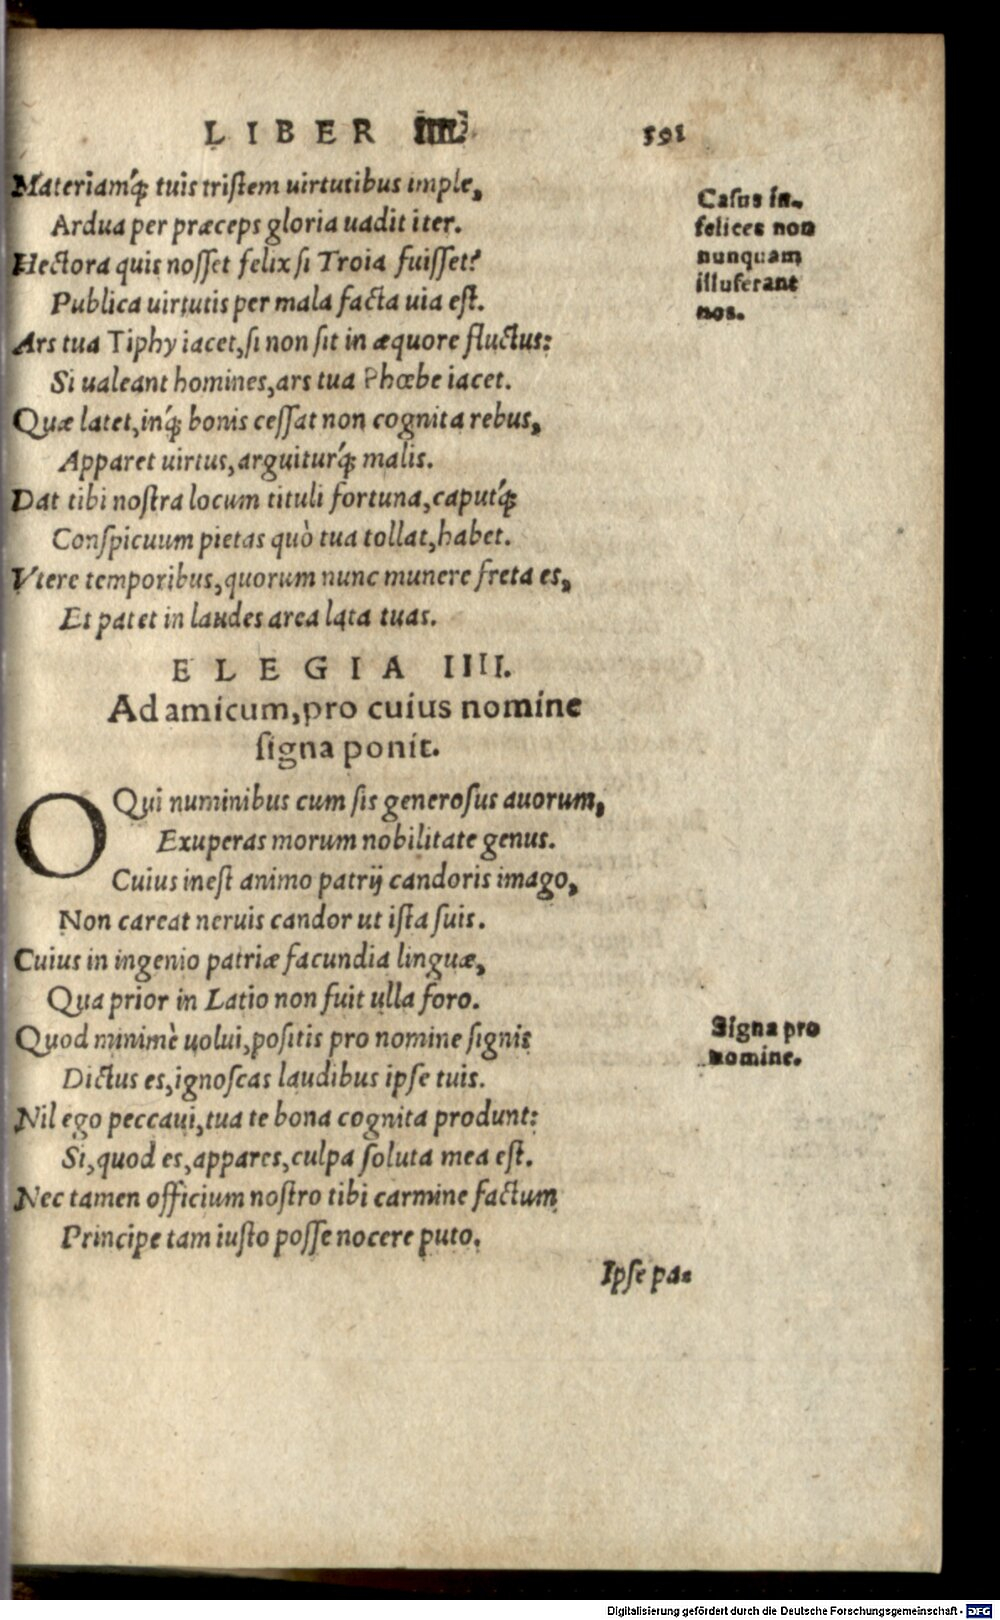 LIBER IIII. 591
Materiamq́; tuis tristem uirtutibus imple,
Ardua per præceps gloria uadit iter.
Hectora quis nosset felix si Troia fuisset?
Publica uirtutis per mala facta uia est.
Ars tua Tiphy iacet, si non sit in æquore fluctus:
Si ualeant homines, ars tua Phœbe iacet.
Quæ latet, inq́; bonis cessat non cognita rebus,
Apparet uirtus, arguiturq́; malis.
Dat tibi nostra locum tituli fortuna, caputq́;
Conspicuum pietas quò tua tollat, habet.
Vtere temporibus, quorum nunc munere freta es,
Et patet in laudes area lata tuas.
Casus in-
felices non
nunquam
illuserant
nos.
ELEGIA IIII.
Ad amicum, pro cuius nomine
signa ponit.
O Qui numinibus cum sis generosus auorum,
Exuperas morum nobilitate genus.
Cuius inest animo patrij candoris imago,
Non careat neruis candor ut ista suis.
Cuius in ingenio patriæ facundia linguæ,
Qua prior in Latio non fuit ulla foro.
Quod minimè uolui, positis pro nomine signis
Dictus es, ignoscas laudibus ipse tuis.
Nil ego peccaui, tua te bona cognita produnt:
Si, quod es, appares, culpa soluta mea est.
Nec tamen officium nostro tibi carmine factum
Principe tam iusto posse nocere puto.
Signa pro
nomine.
Ipse pa-
Digitalisierung gefördert durch die Deutsche Forschungsgemeinschaft - DFG